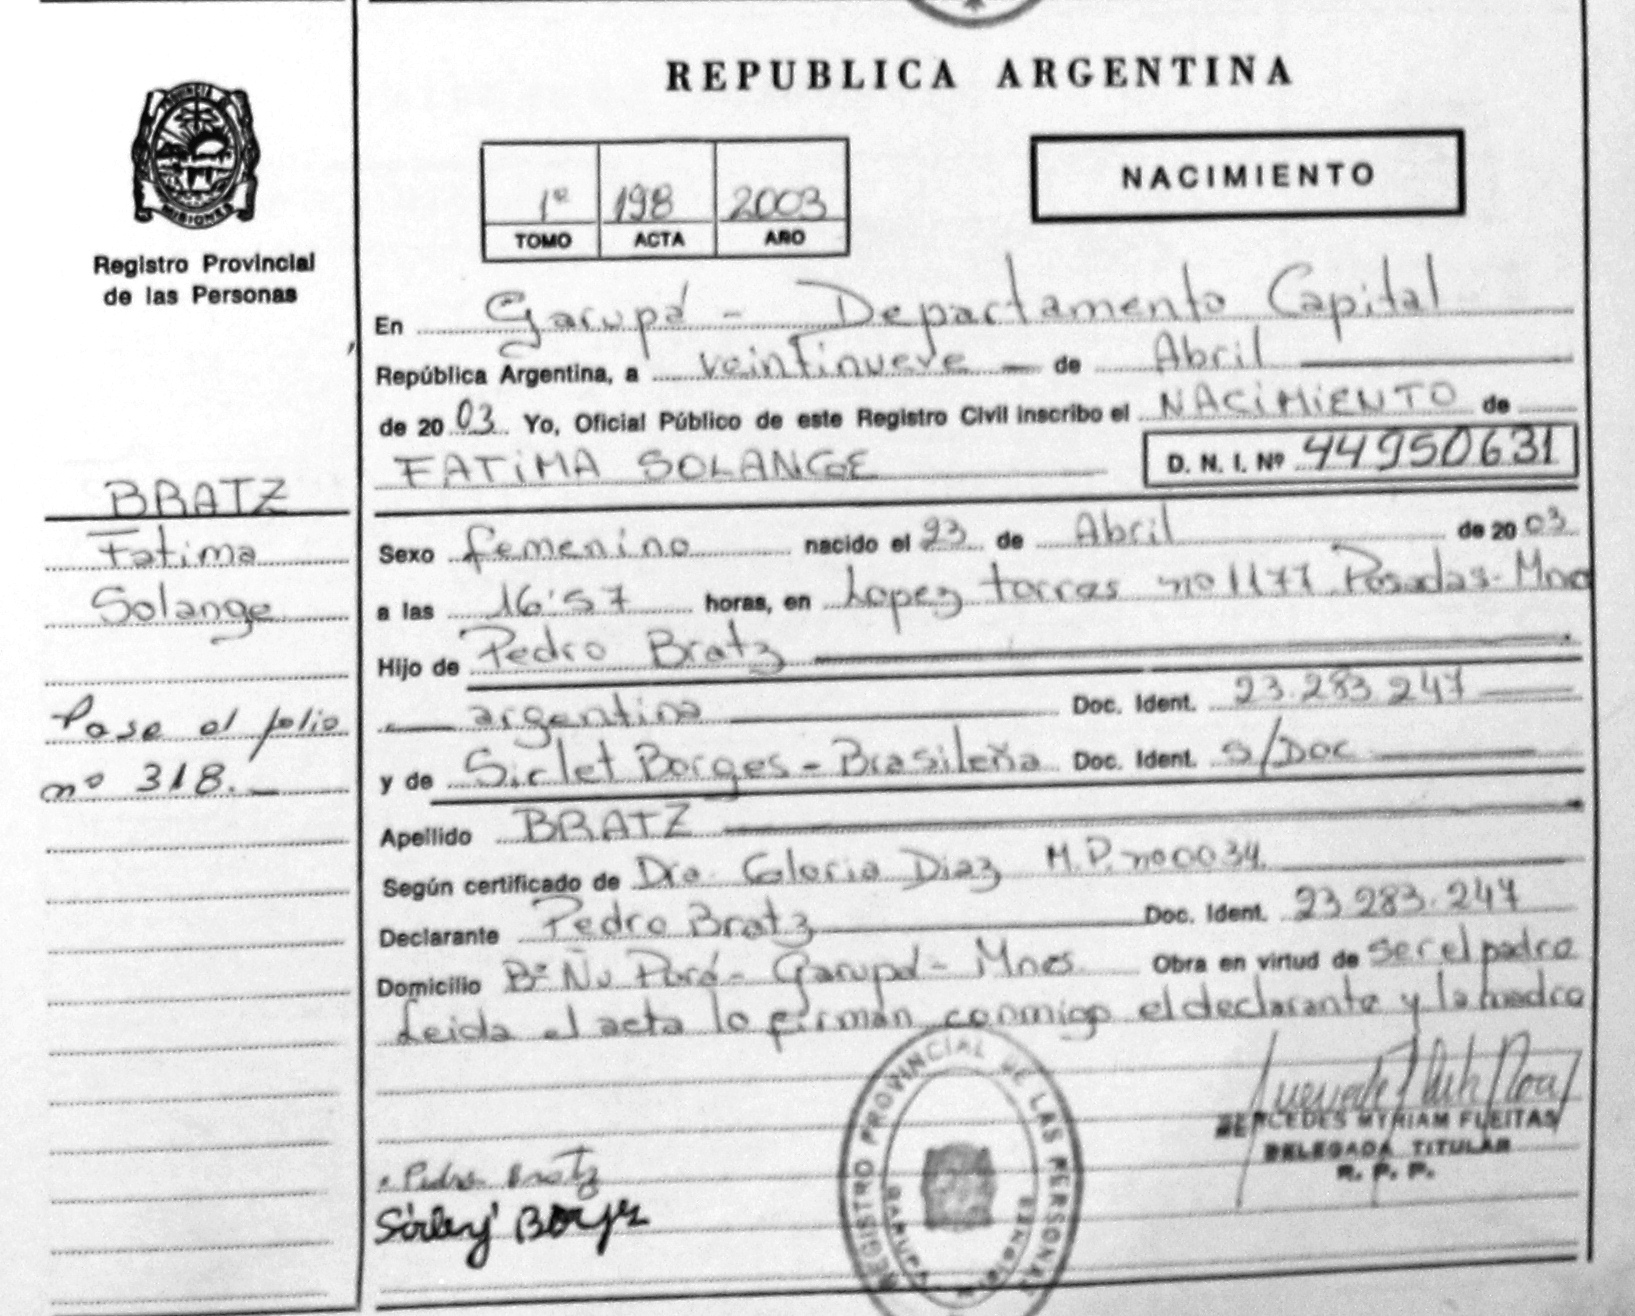 REPUBLICA ARGENTINA
PROVINCIA DE
MISIONES
Registro Provincial
de las Personas
1º 198 2003
TOMO ACTA AÑO
NACIMIENTO
En Garupá - Departamento Capital
República Argentina, a veintinueve de Abril
de 2003 Yo, Oficial Público de este Registro Civil inscribo el NACIMIENTO de
FATIMA SOLANGE D. N. I. Nº 44950631
Sexo femenino nacido el 23 de Abril de 2003
a las 16:57 horas, en Lopez torres nº 1177 Posadas-Mnes
Hijo de Pedro Bratz
argentina Doc. Ident. 23.283.247
y de Sirlet Borges - Brasileña Doc. Ident. S/Doc
Apellido BRATZ
Según certificado de Dra. Gloria Diaz M.P. nº 0034.
Declarante Pedro Bratz Doc. Ident. 23.283.247
Domicilio Bº Ñu Porá - Garupá - Mnes. Obra en virtud de ser el padre
Leida el acta lo firman conmigo el declarante y la madre
BRATZ
Fatima
Solange
Pase al folio
nº 318.
Pedro Bratz
Sirley Borges
REGISTRO PROVINCIAL DE LAS PERSONAS
GARUPA MISIONES
MERCEDES MYRIAM FLEITAS
DELEGADA TITULAR
R. P. P.